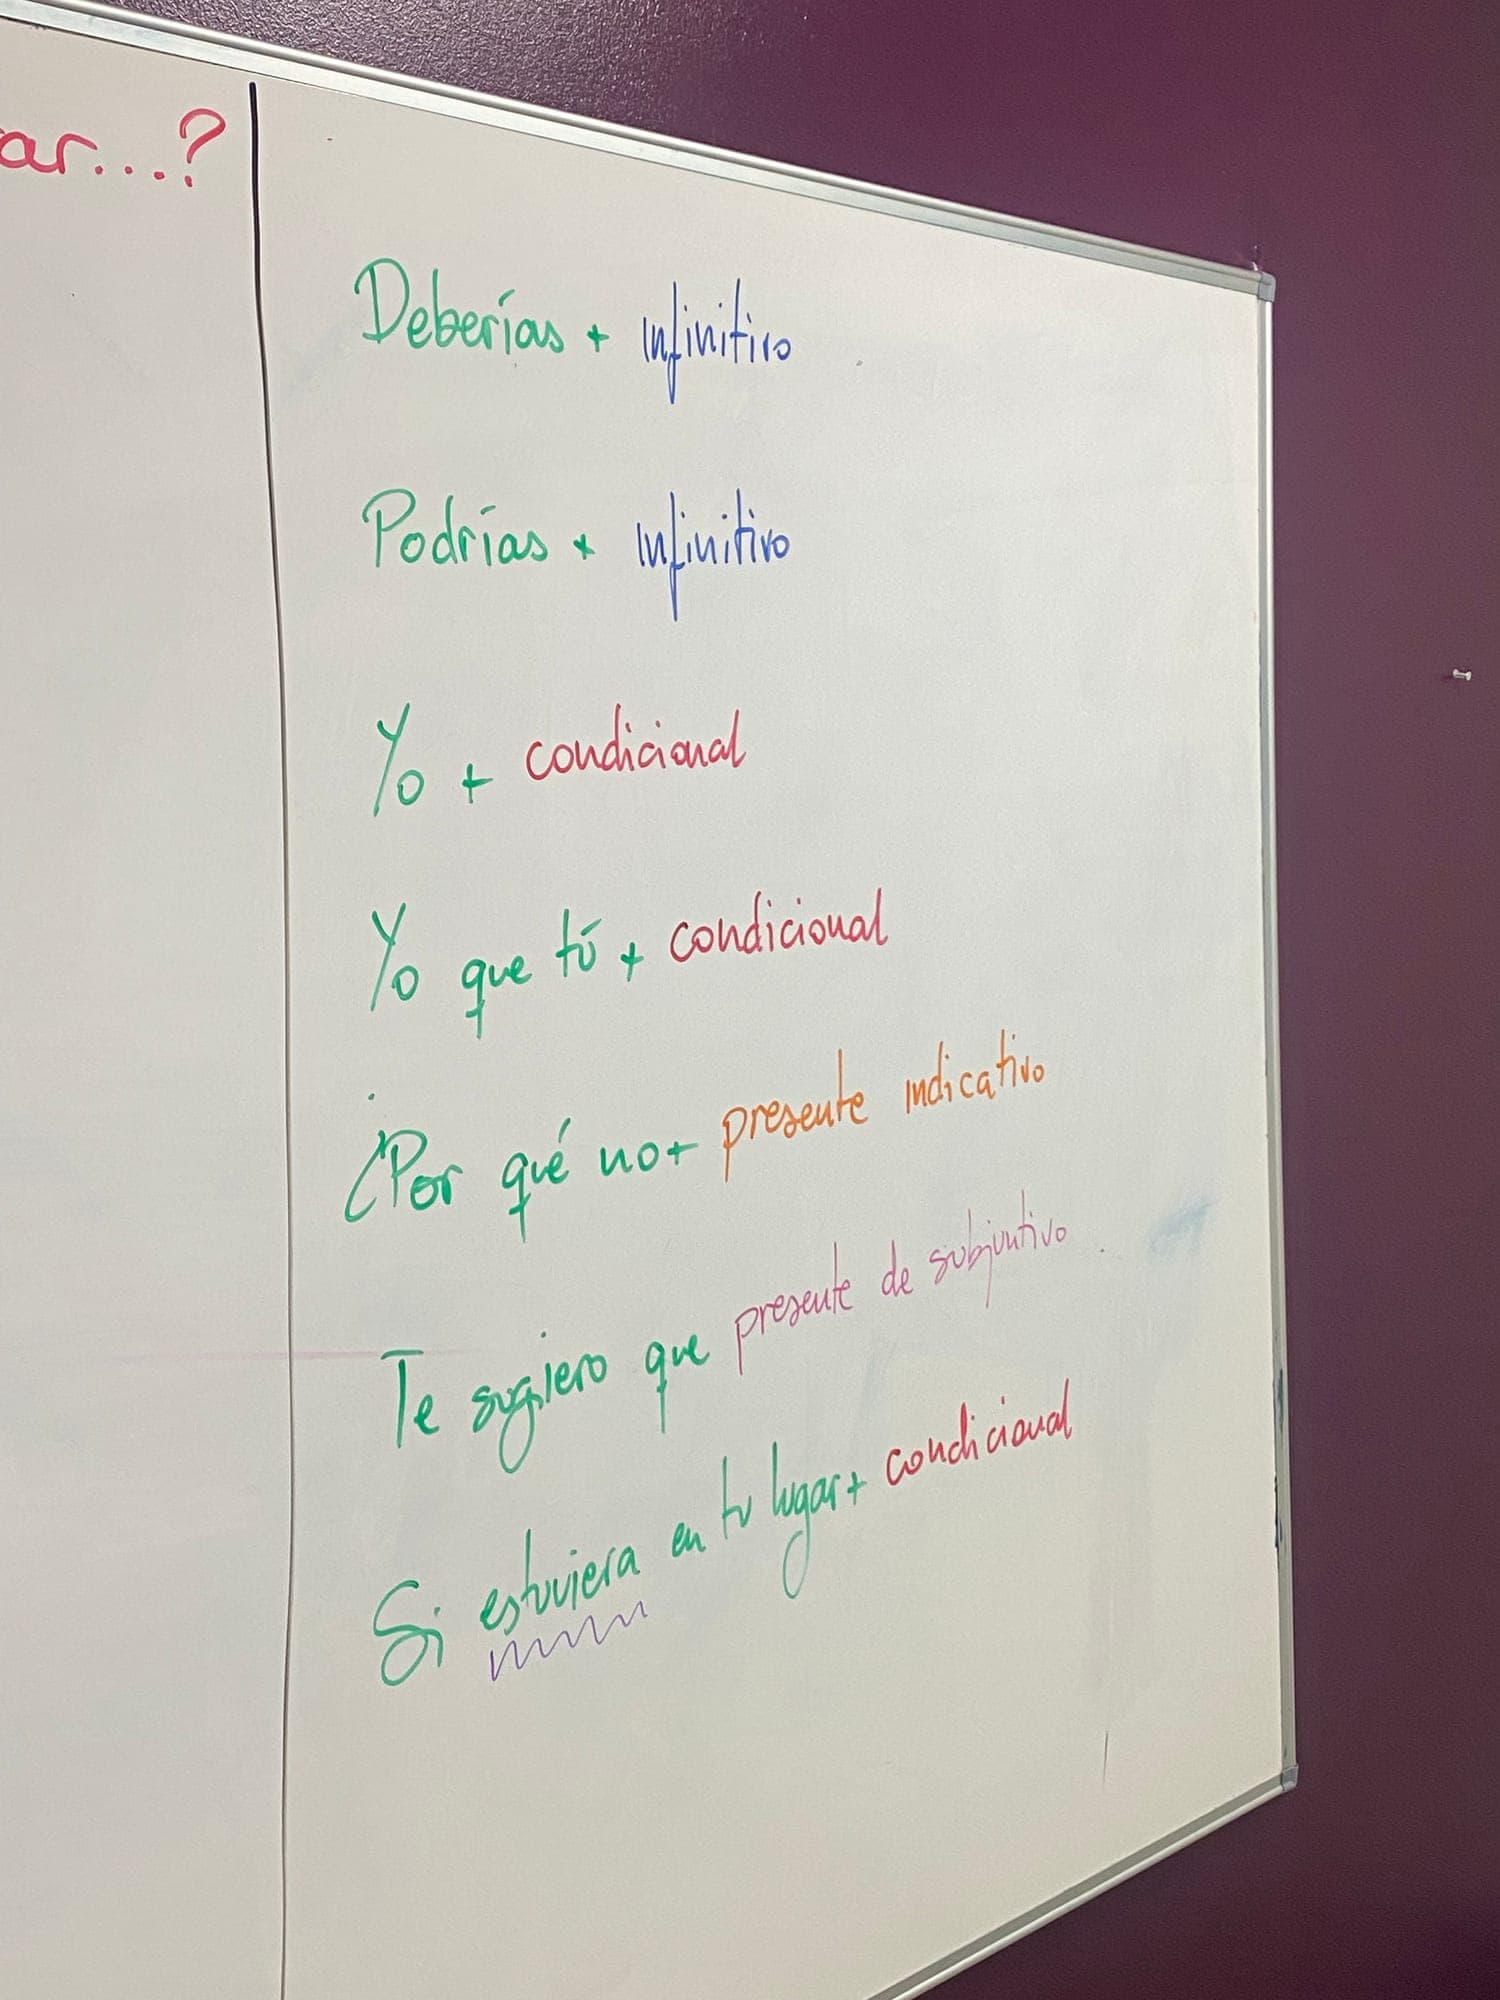 ar...?
Deberías + infinitivo
Podrías + infinitivo
Yo + condicional
Yo que tú + condicional
¿Por qué no + presente indicativo
Te sugiero que presente de subjuntivo
Si estuviera en tu lugar + condicional